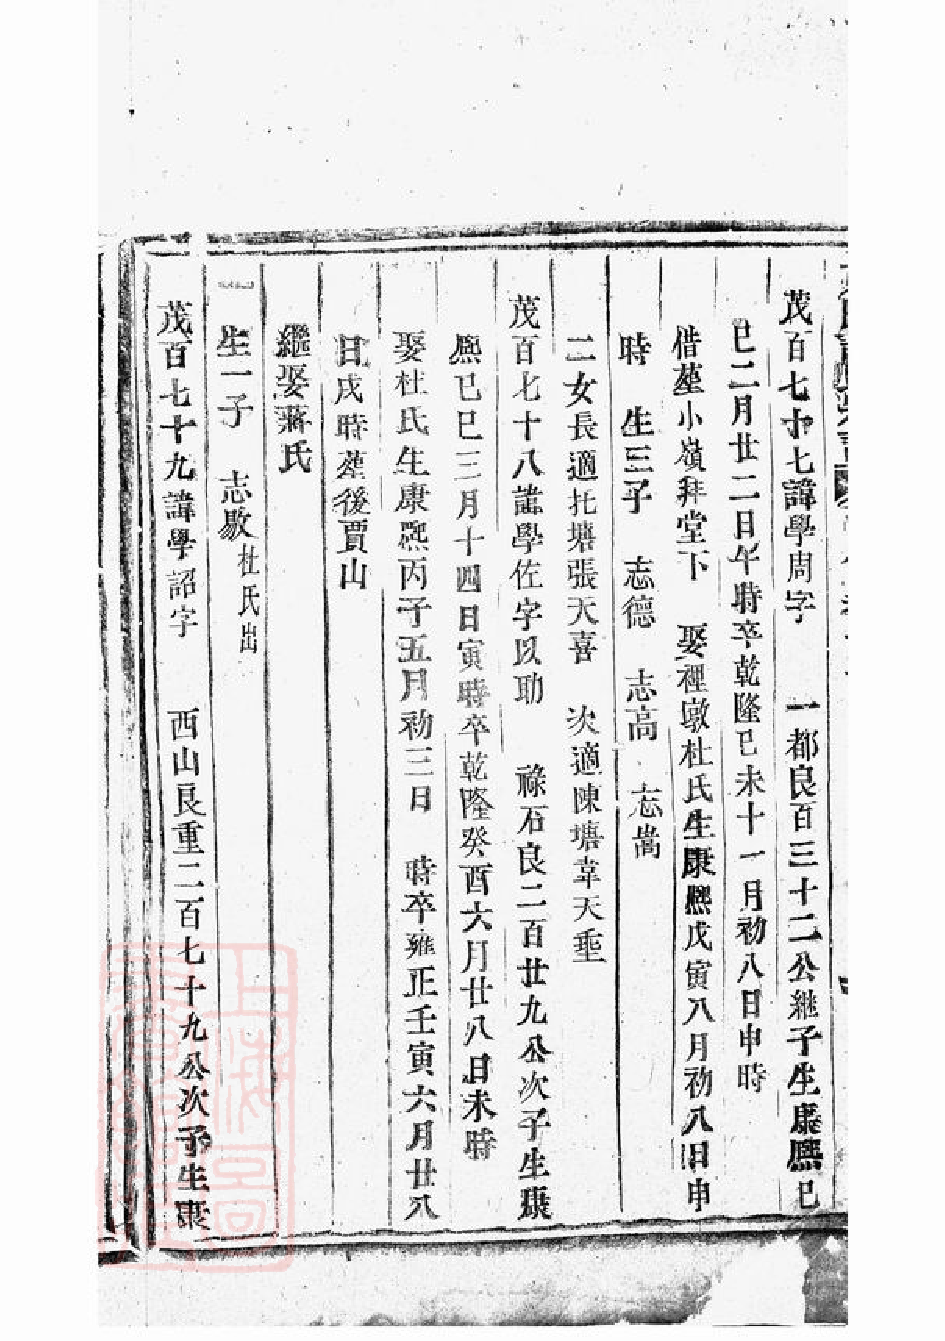 茂百七十七諱學周字　一都良百三十二公継子生康熈已
巳二月廿二日午時卒乾隆已未十一月初八日申時
借塟小嶺拜堂下　娶裡墩杜氏生康熈戊寅八月初八日申
時　生三子　志德　志高　志嵩
二女長適托塘張天喜　次適陳塘韋天垂
茂百七十八諱學佐字以助　祿石良二百廿九公次子生康
熈已巳三月十四日寅時卒乾隆癸酉六月廿八日未時
娶杜氏生康熈丙子五月初三日　時卒雍正壬寅六月廿八
日戌時塟後賈山
繼娶蔣氏
生一子　志敭杜氏出
茂百七十九諱學詔字　西山良重二百七十九公次子生康